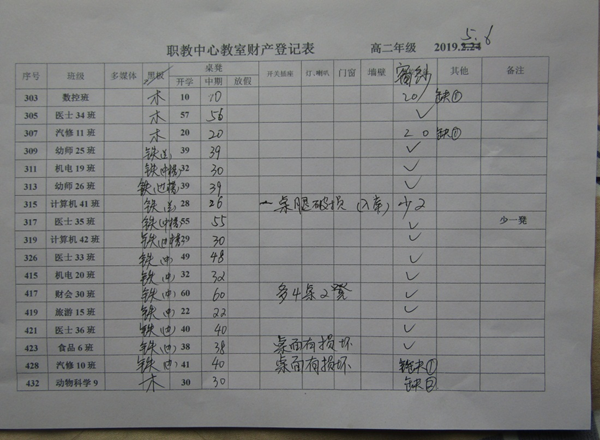 职教中心教室财产登记表 高二年级 2019.2.24 5.6
序号 班级 多媒体 黑板 桌凳 开关插座 灯、喇叭 门窗 墙壁 窗纱 其他 备注
开学 中期 放假
303 数控班 木 10 10 20 缺①
305 医士 34 班 木 57 56 ✓
307 汽修 11 班 木 20 20 20 缺①
309 幼师 25 班 铁 39 39 ✓
311 机电 19 班 铁 32 30 ✓
313 幼师 26 班 铁 39 39 ✓
315 计算机 41 班 铁 28 26 一桌腿破损 少2
317 医士 35 班 铁 55 55 ✓ 少一凳
319 计算机 42 班 铁 29 30 ✓
326 医士 33 班 铁(中) 49 48 ✓
415 机电 20 班 铁(中) 32 32 ✓
417 财会 30 班 铁(中) 60 60 多4桌2凳 ✓
419 旅游 15 班 铁(中) 22 22 ✓
421 医士 36 班 铁(中) 40 40 ✓
423 食品 6 班 铁(中) 38 38 桌面有损坏 ✓
428 汽修 10 班 铁(中) 41 40 桌面有损坏 缺①
432 动物科学 9 木 30 30 缺